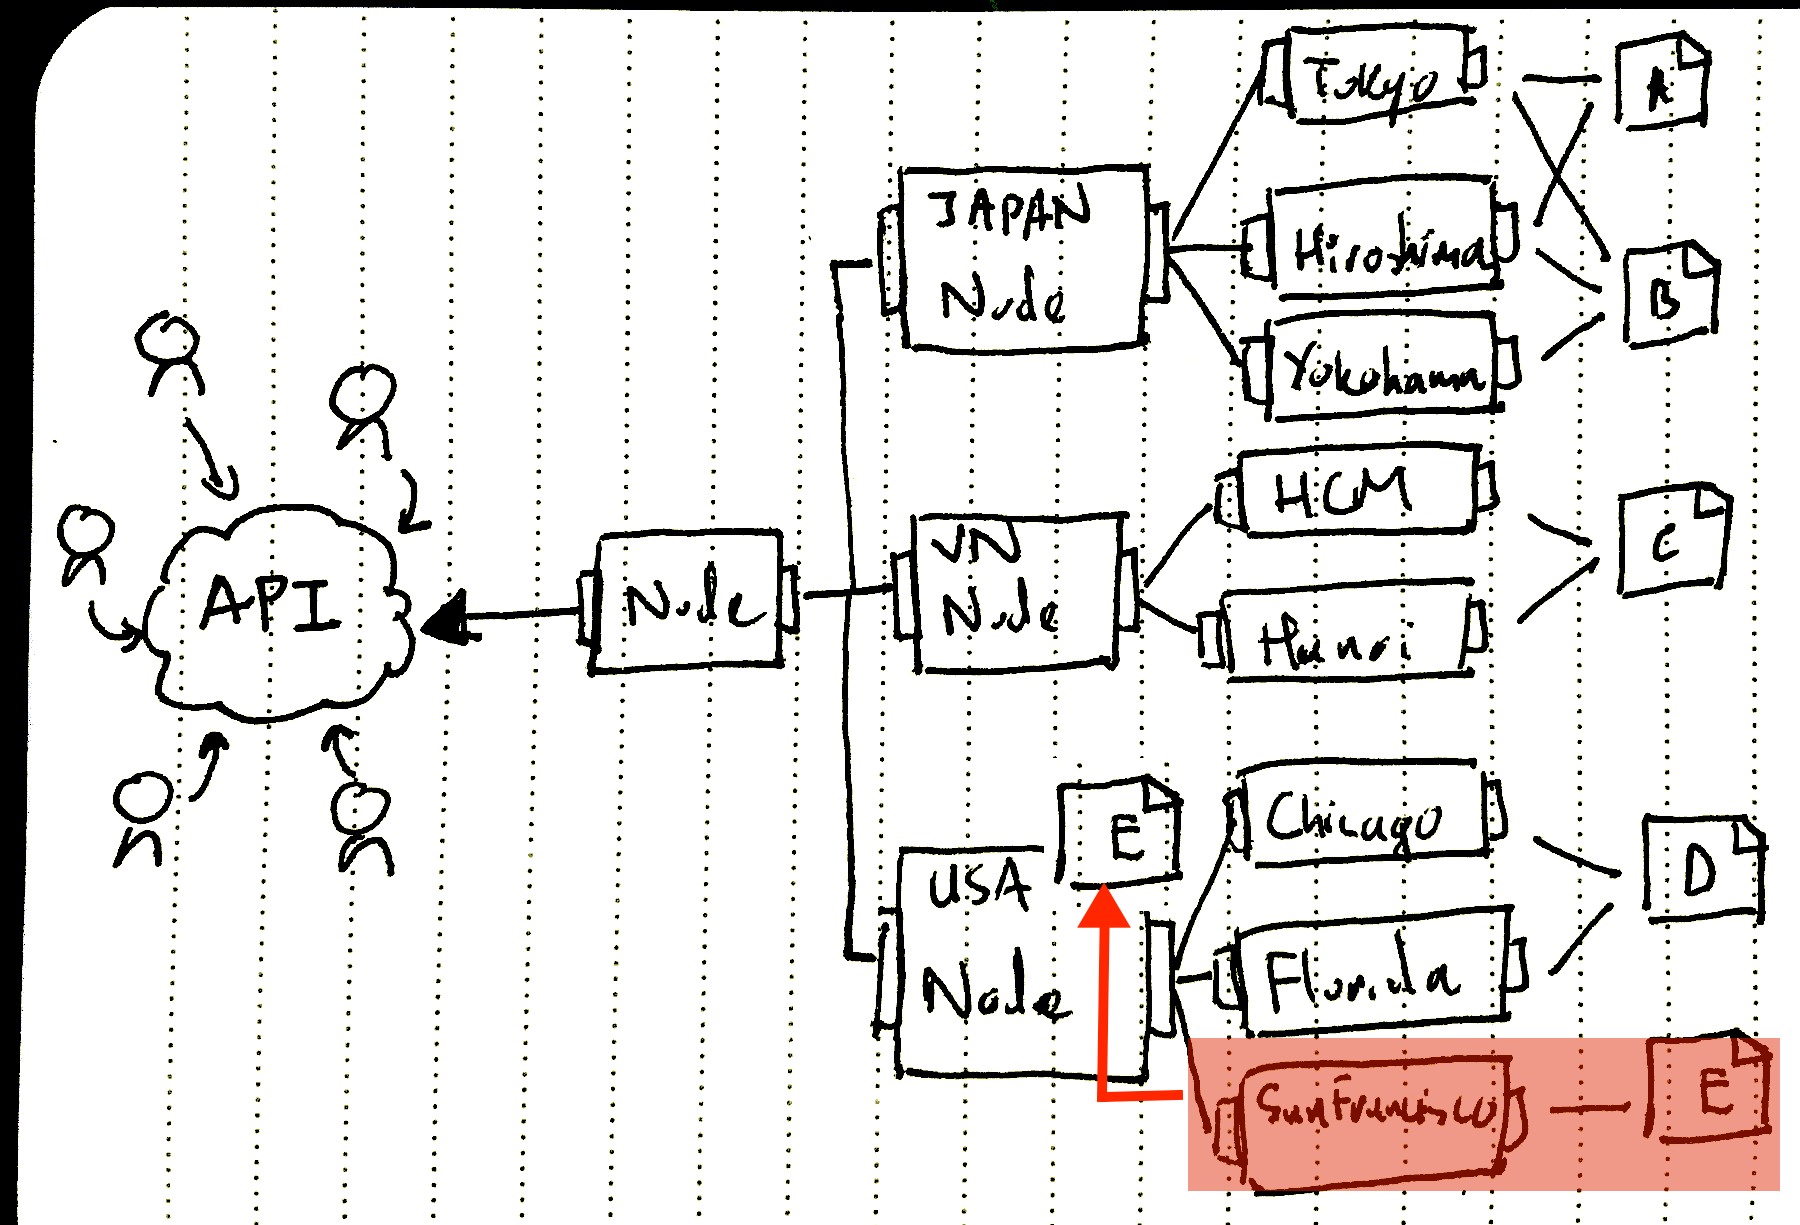 API
Node
JAPAN
Node
VN
Node
USA
Node
E
Tokyo
Hiroshima
Yokohama
HCM
Hanoi
Chicago
Florida
SanFrancisco
A
B
C
D
E